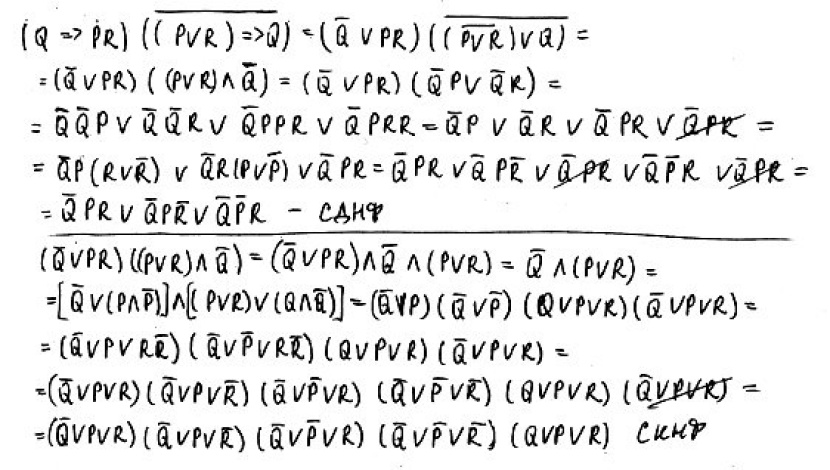 (Q => PR) (\overline{(PVR) => Q}) = (Q̄ ∨ PR) (\overline{(\overline{P∨R}) ∨ Q}) =
= (Q̄ ∨ PR) ((P∨R) ∧ Q̄) = (Q̄ ∨ PR) (Q̄P ∨ Q̄R) =
= Q̄Q̄P ∨ Q̄Q̄R ∨ Q̄PPR ∨ Q̄PRR = Q̄P ∨ Q̄R ∨ Q̄PR ∨ Q̄PR =
= Q̄P(R∨R̄) ∨ Q̄R(P∨P̄) ∨ Q̄PR = Q̄PR ∨ Q̄PR̄ ∨ Q̄PR ∨ Q̄P̄R ∨ Q̄PR =
= Q̄PR ∨ Q̄PR̄ ∨ Q̄P̄R – СДНФ
(Q̄∨PR) ((P∨R) ∧ Q̄) = (Q̄∨PR) ∧ Q̄ ∧ (P∨R) = Q̄ ∧ (P∨R) =
= [Q̄∨(P∧P̄)] ∧ [(P∨R)∨(Q∧Q̄)] = (Q̄∨P) (Q̄∨P̄) (Q∨P∨R) (Q̄∨P∨R) =
= (Q̄∨P∨RR̄) (Q̄∨P̄∨RR̄) (Q∨P∨R) (Q̄∨P∨R) =
= (Q̄∨P∨R) (Q̄∨P∨R̄) (Q̄∨P̄∨R) (Q̄∨P̄∨R̄) (Q∨P∨R) (Q̄∨P∨R) =
= (Q̄∨P∨R) (Q̄∨P∨R̄) (Q̄∨P̄∨R) (Q̄∨P̄∨R̄) (Q∨P∨R) СКНФ